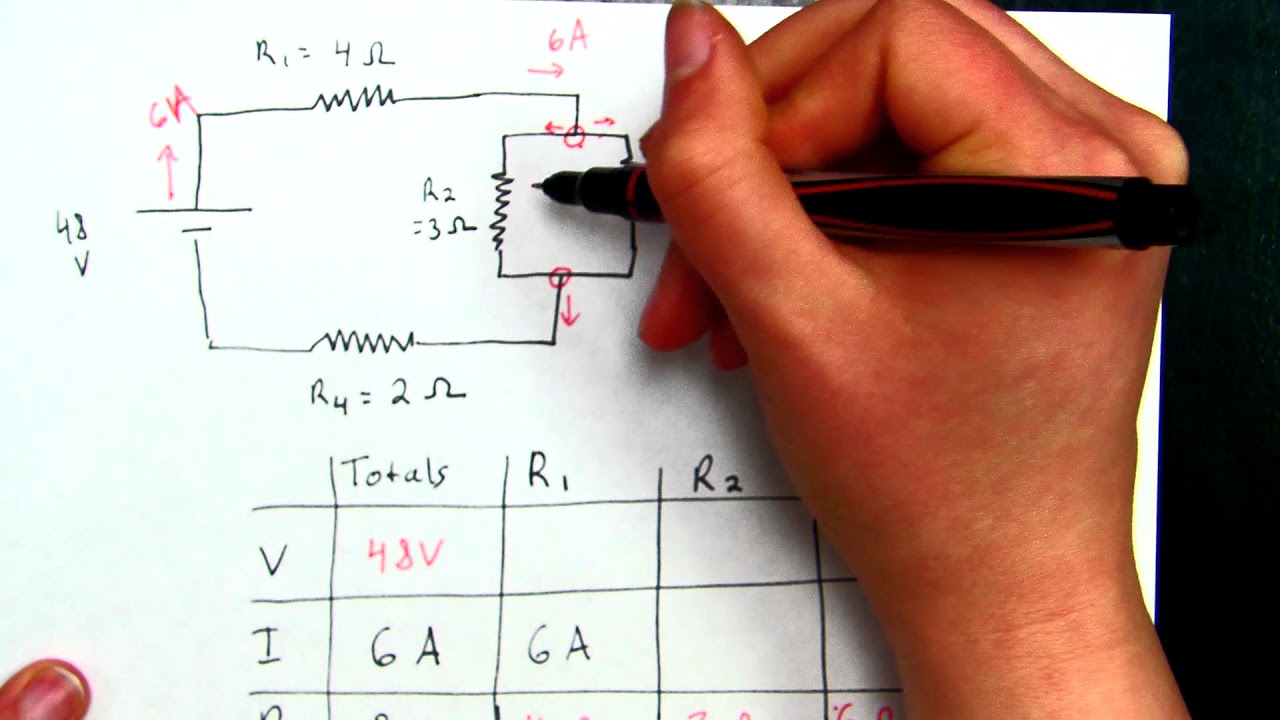 R1 = 4 Ω
6A
6A
R2
= 3 Ω
48
V
R4 = 2 Ω
Totals R1 R2
V 48V
I 6 A 6 A